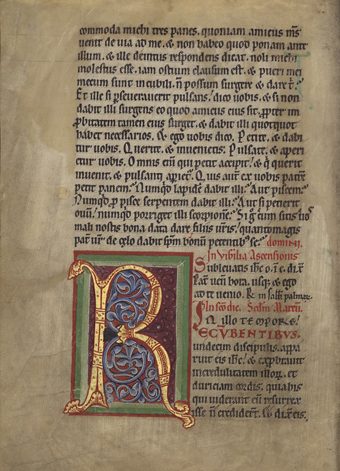 commoda michi tres panes. quoniam amicus m̅s
venit de via ad me. & non habeo quod ponam ante
illum. & ille deintus respondens dicat. noli michi
molestus esse. iam ostium clausum est. & pueri mei
mecum sunt in cubili. n̅ possum surgere & dare t̅.
Et ille si p̱severaverit pulsans. dico vobis. & si non
dabit illi surgens eo quod amicus eius sit. ꝓpter im
ꝓbitatem tamen eius surget. & dabit illi quotquot
habet necessarios. & ego vobis dico. Petite. & dabi
tur vobis. Querite. & invenietis. Pulsate. & aperi
etur vobis. Omnis eni̅ qui petit accipit. & q̇ querit
invenit. & pulsanti apiet᷑. Quis aut̅ ex vobis patre̅
petit panem. Nunqd lapide̅ dabit illi? Aut piscem.
Nunqd ꝓ pisce serpentem dabit illi? Aut si petierit
ouu̅. nunqd porriget illi scorpione̅? Si g̊ cum sitis vos
mali nostis bona data dare filiis vr̅is. quantomagis
pat᷑ vr̅ de celo dabit sp̅m bonu̅ petentib; se.
In Vigilia Ascensionis
Sublevatis ih̅c o. i. c. dix̅.
Pat᷑ venit hora. usq; & ego
ad te venio. R̅ in sabb̅ palmar̅.
In sc̅do die. Scd̅m Marcu̅.
IN illo tempore.
RECUBENTIBUS
undecim discipulis. appa
ruit eis ih̅c. & exprobravit
incredulitatem illor̅. &
duriciam cordis. quia his
qui viderant eu̅ resurrex
isse n̅ credider̅t.